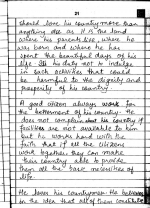 21
should love his country more than
anything else as it is the land
where his parents live, where he
was born and where he has
spent the beautiful days of his
life. It is his duty not to indulge
in such activities that could
be harmful to the dignity and
prosperity of his country.
A good citizen always work for
the betterment of his country. He
does not complain that his country if
facilities are not available to him
but he works hard with the
faith that if all the citizens
work together they can make
their country able to provide
them all the basic necessities of
life.
He loves his countrymen. He believes
in the idea that all of them constitute